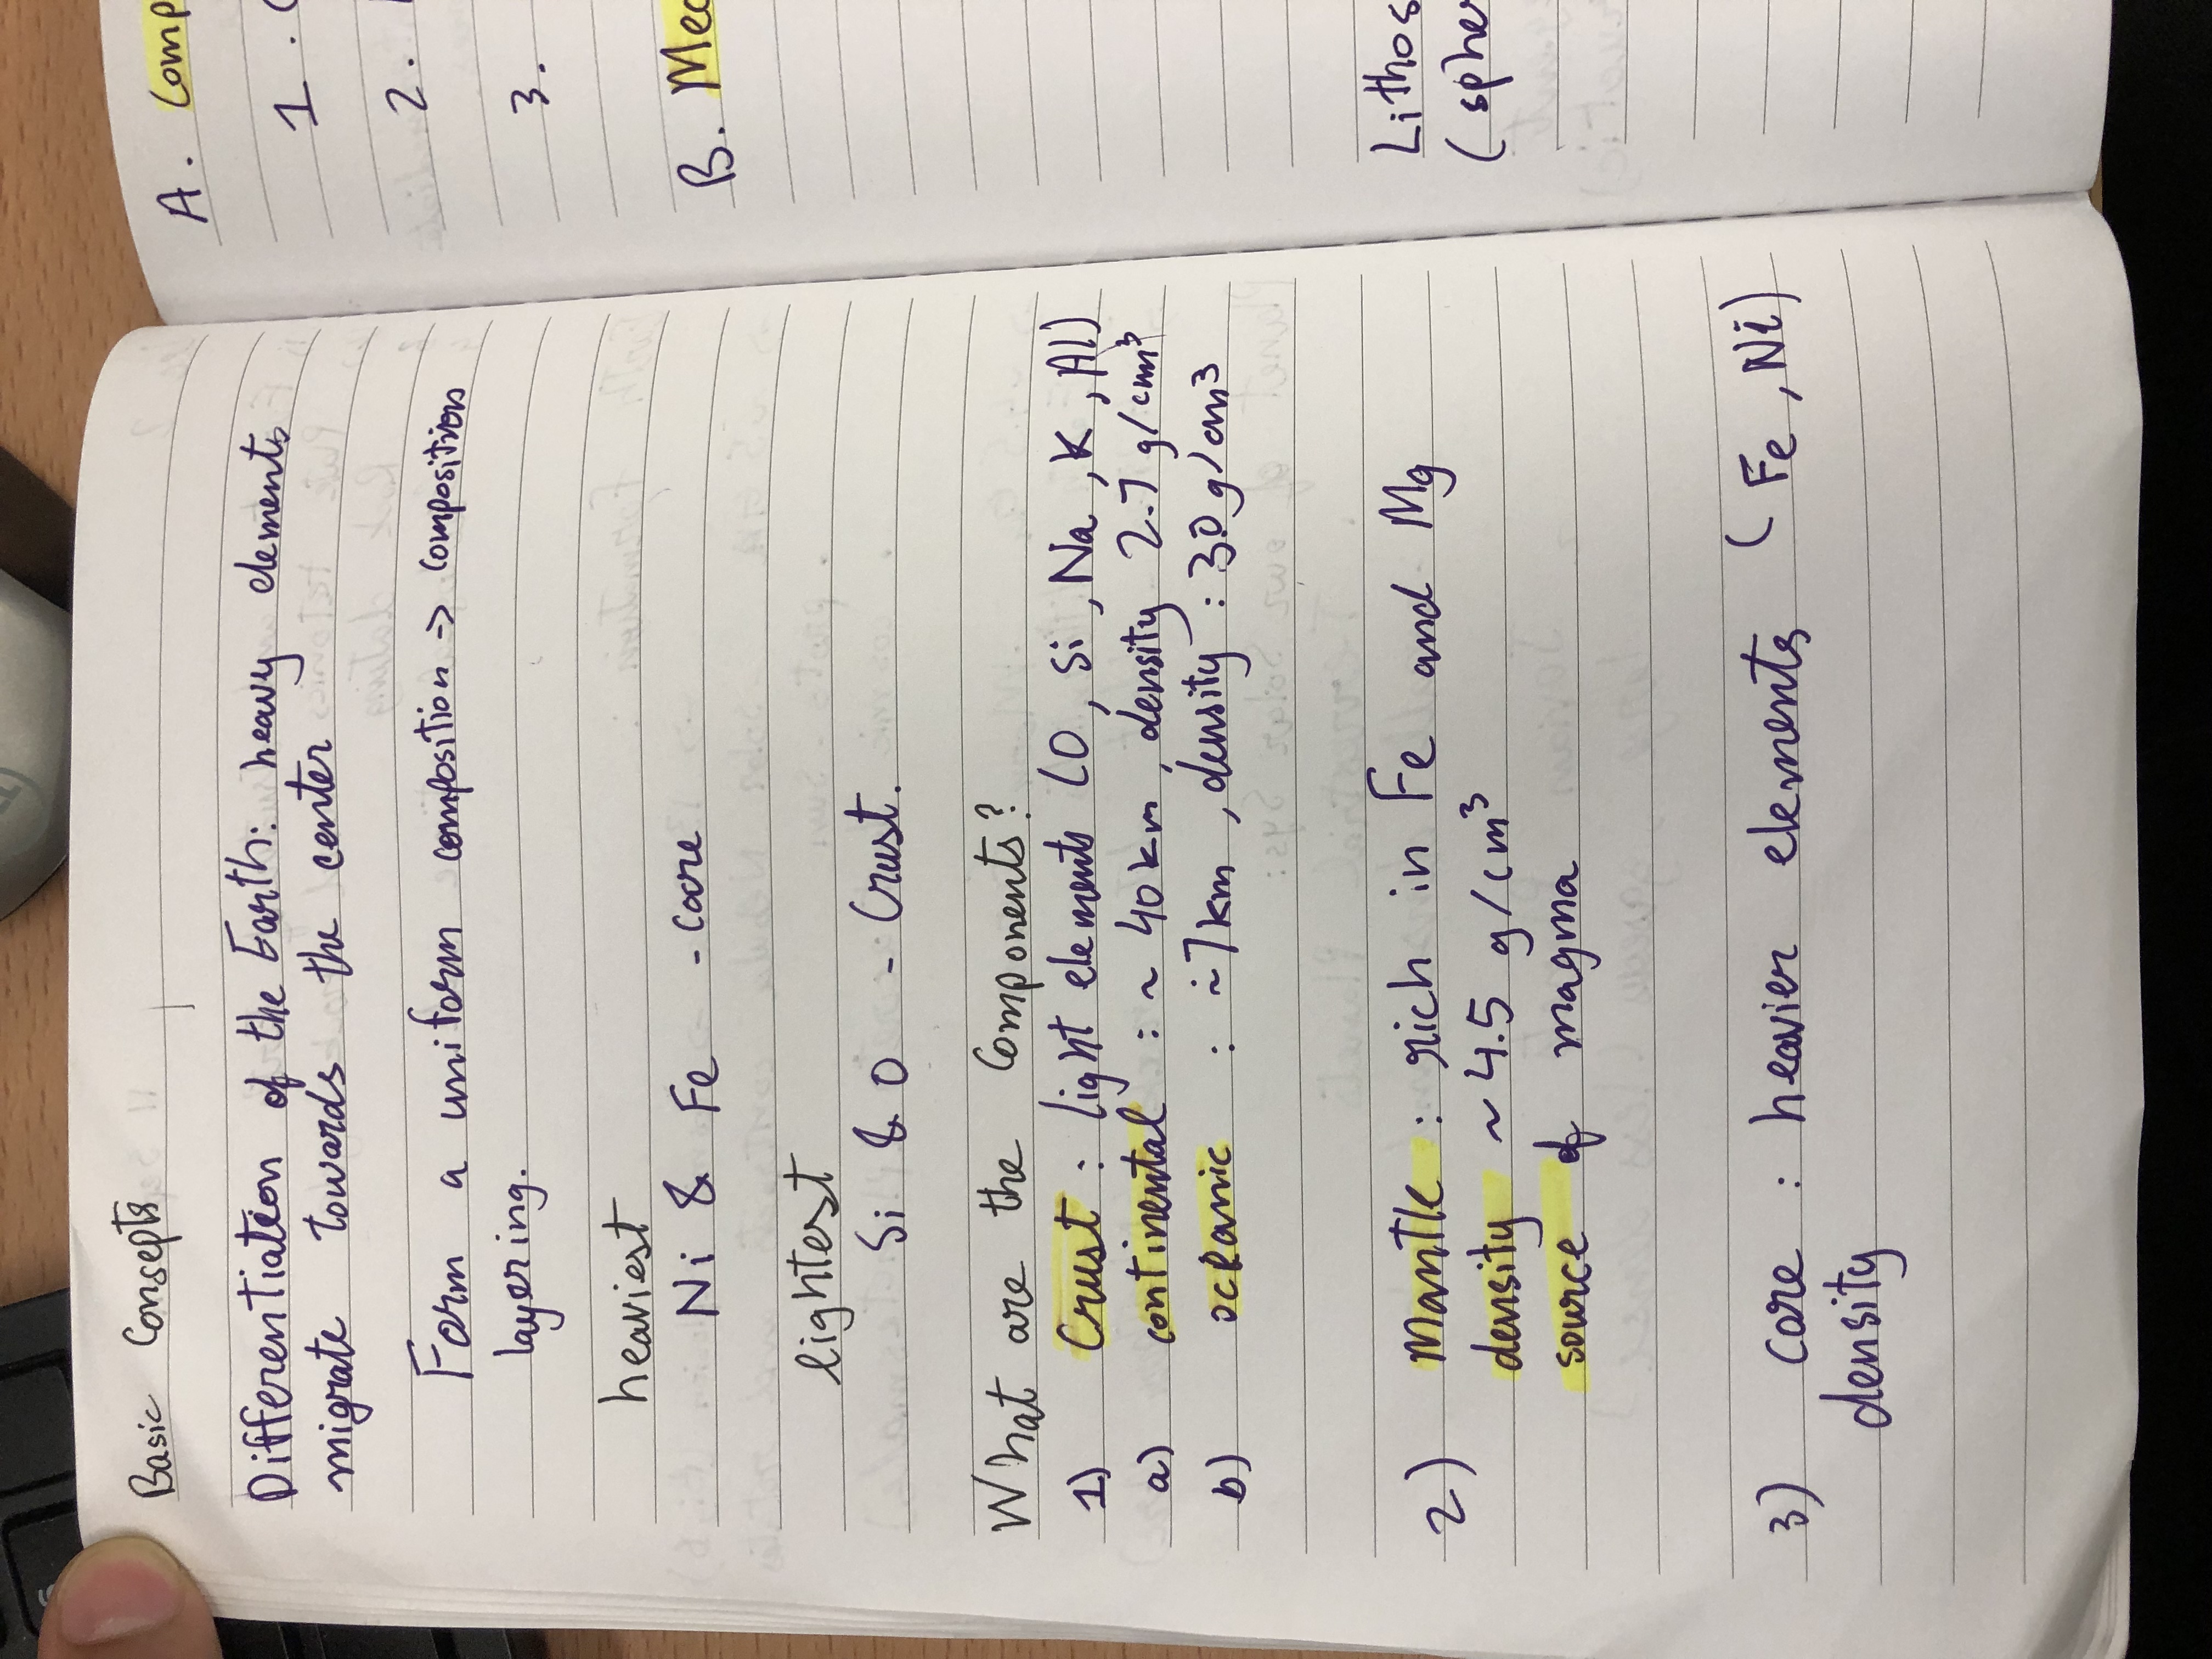 Basic Consepts
Differentiation of the Earth: heavy elements
migrate towards the center
Form a uniform composition -> compositions
layering.
heaviest
Ni & Fe - core
lightest
Si & O - Crust.
What are the Components?
1) Crust : light elements (O, Si, Na, K, Al)
a) continental : ~ 40 km, density 2.7 g/cm³
b) oceanic : ~7km, density : 3.0 g/cm³
2) Mantle : rich in Fe and Mg
density ~ 4.5 g/cm³
source of magma
3) core : heavier elements (Fe, Ni)
density
A. Comp
1. C
2.
3.
B. Mec
Lithos
(spher